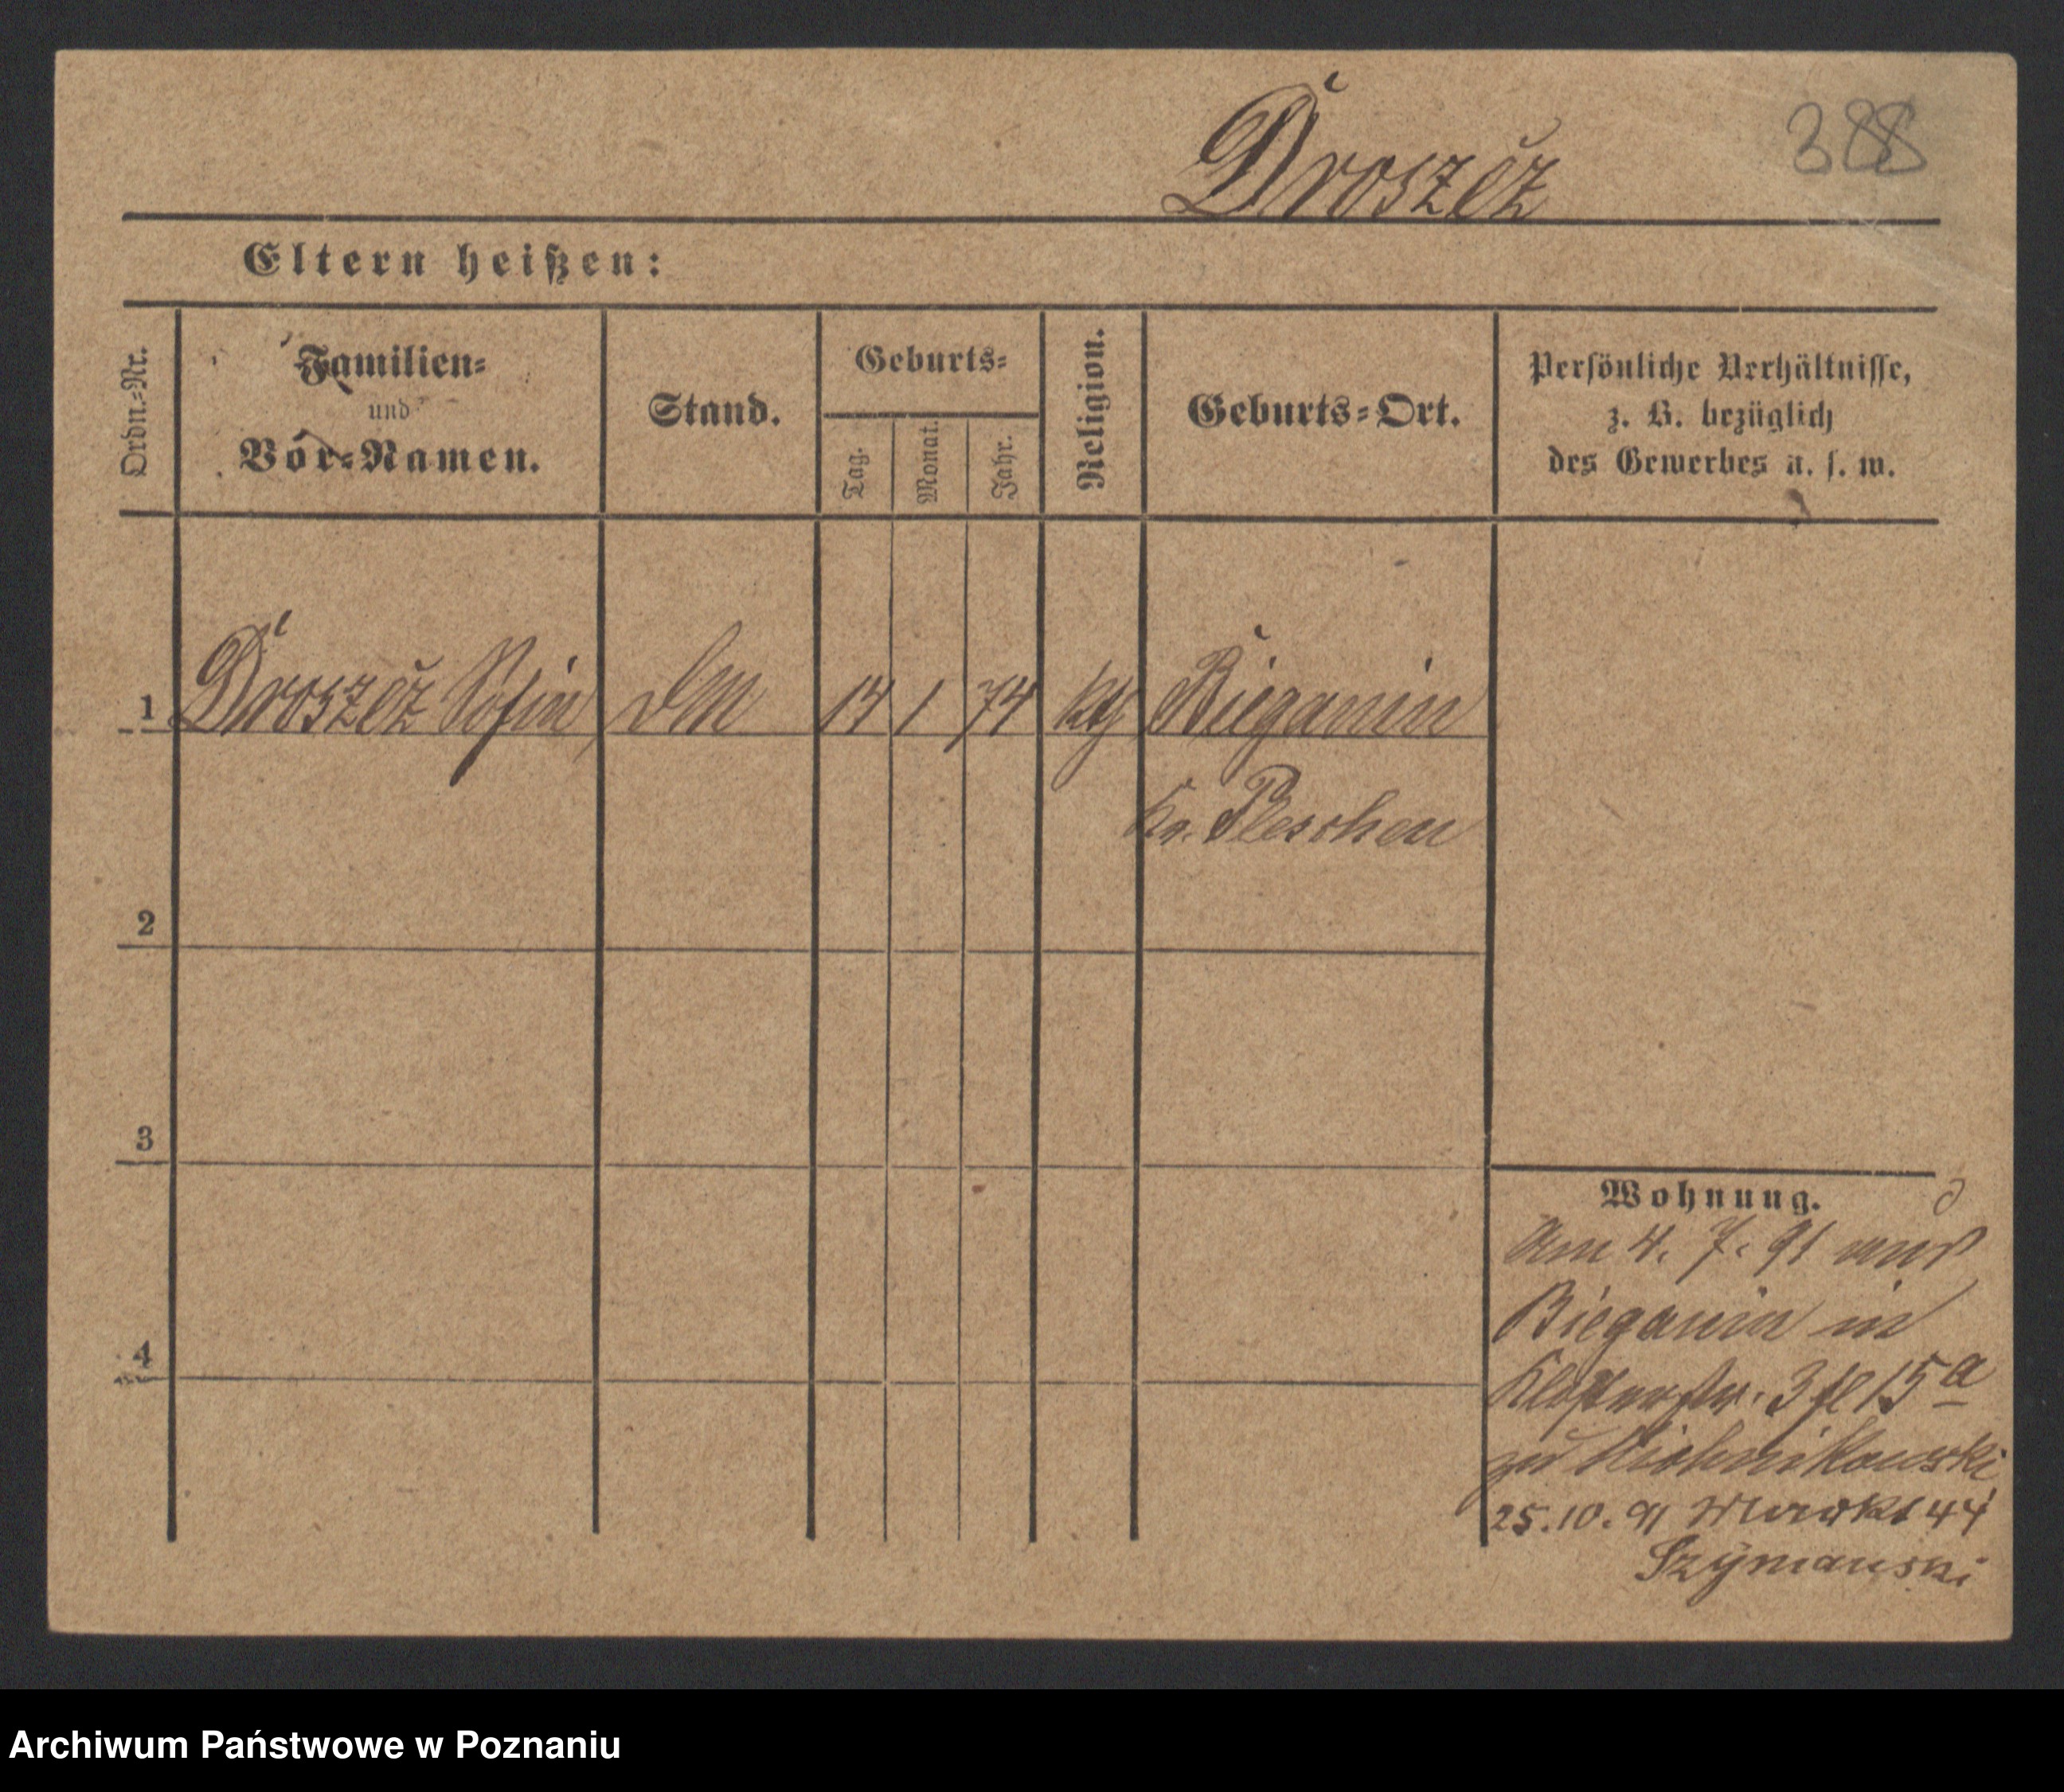 388
Droszcz
Eltern heißen:
Ordn.-Nr. Familien- und Vor-Namen. Stand. Geburts- Tag. Monat. Jahr. Religion. Geburts-Ort. Persönliche Verhältnisse, z. B. bezüglich des Gewerbes u. s. w.
1 Droszcz Sofie DM 14 1 74 kth Bieganin
Kr. Pleschen
2
3
4
Wohnung.
Am 4. 7. 91 aus
Bieganin in
Klosterstr. 3 fl 15a
zu
25.10.91 Markt 44
Szymanski
Archiwum Państwowe w Poznaniu